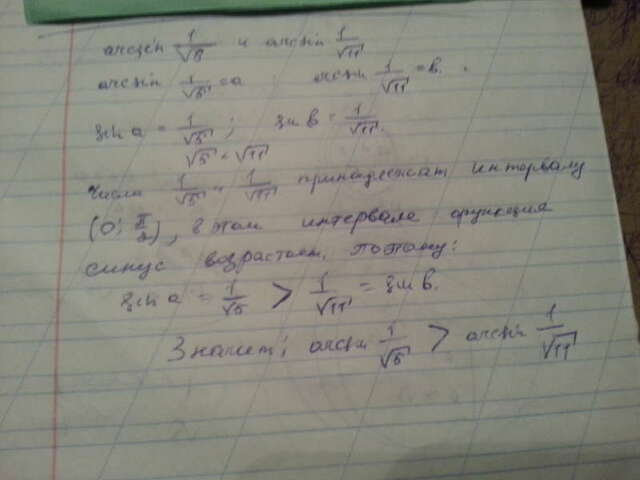 arcsin 1/√5 и arcsin 1/√11
arcsin 1/√5 = a arcsin 1/√11 = b.
sin a = 1/√5; sin b = 1/√11.
√5 < √11
Числа 1/√5 и 1/√11 принадлежат интервалу
(0; π/2), в этом интервале функция
синус возрастает, поэтому:
sin a = 1/√5 > 1/√11 = sin b.
Значит; arcsin 1/√5 > arcsin 1/√11